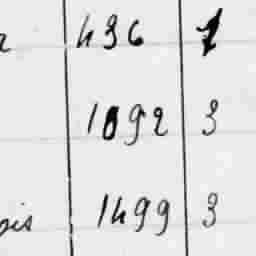 436 1
1092 3
1499 3